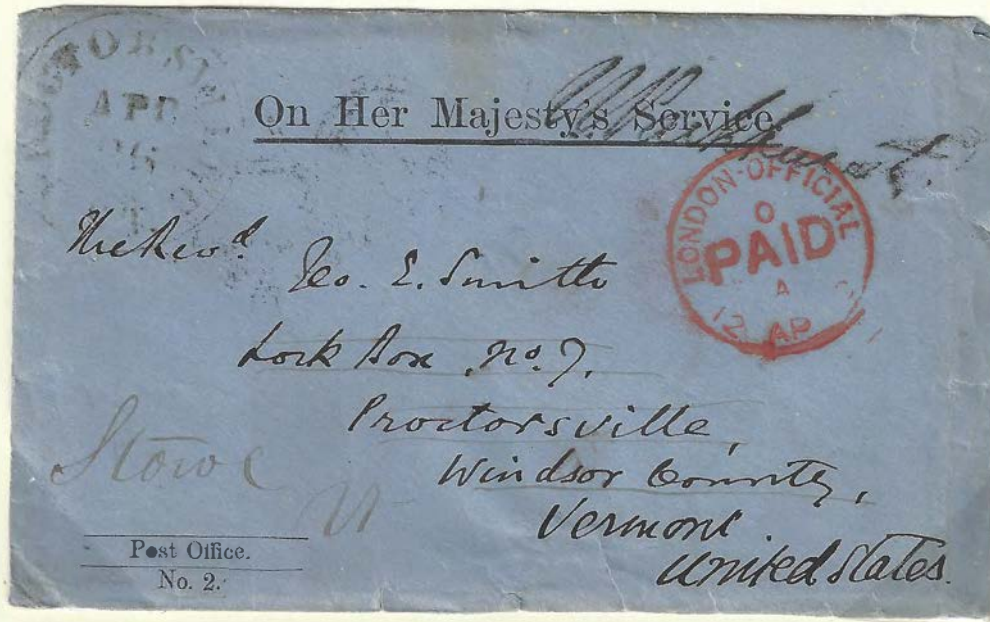 On Her Majesty's Service.
LONDON-OFFICIAL
O
PAID
A
12 AP
APR
26
The Revd.
Geo. E. Smith
Lock Box No. 7,
Proctorsville,
Windsor County,
Vermont
United States.
Stowe
Vt
Post Office.
No. 2.